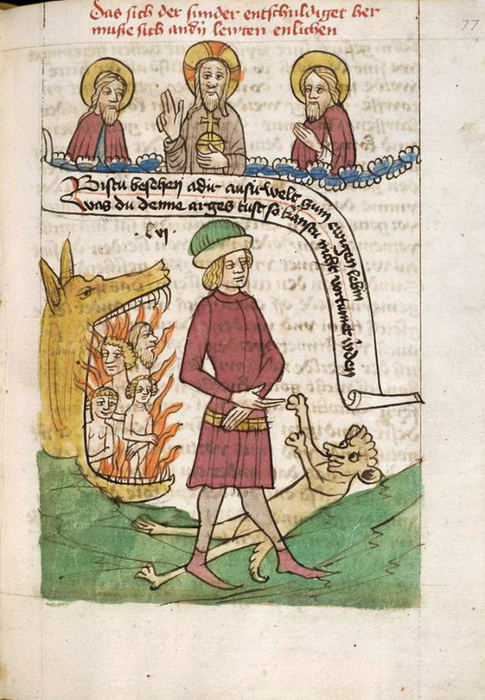 das sich der sunder entschuldiget her
musse sich andn lewten enlichen
77
Bistu besehen adir ausirwelt zum ewigen lebin
was du denne arges tust so kanstu nicht vortumet
lvj